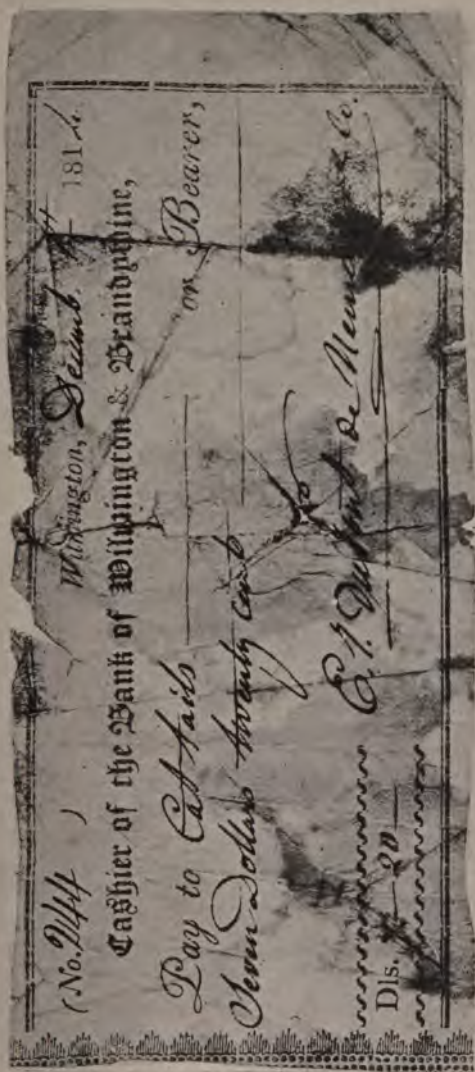 (No. 244 )
Wilmington, Decemb. 181
Cashier of the Bank of Wilmington & Brandywine,
Pay to Cat tails or Bearer,
Seven Dollars twenty cents
E. I. Du Pont de Nemours & Co.
Dls. 7—20—